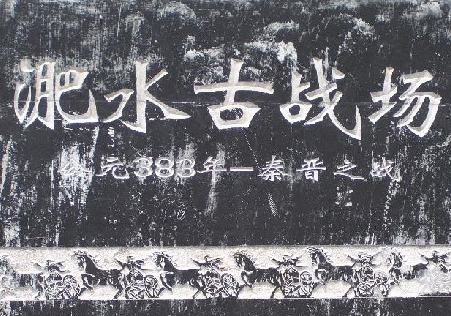 淝水古战场
公元383年－秦晋之战